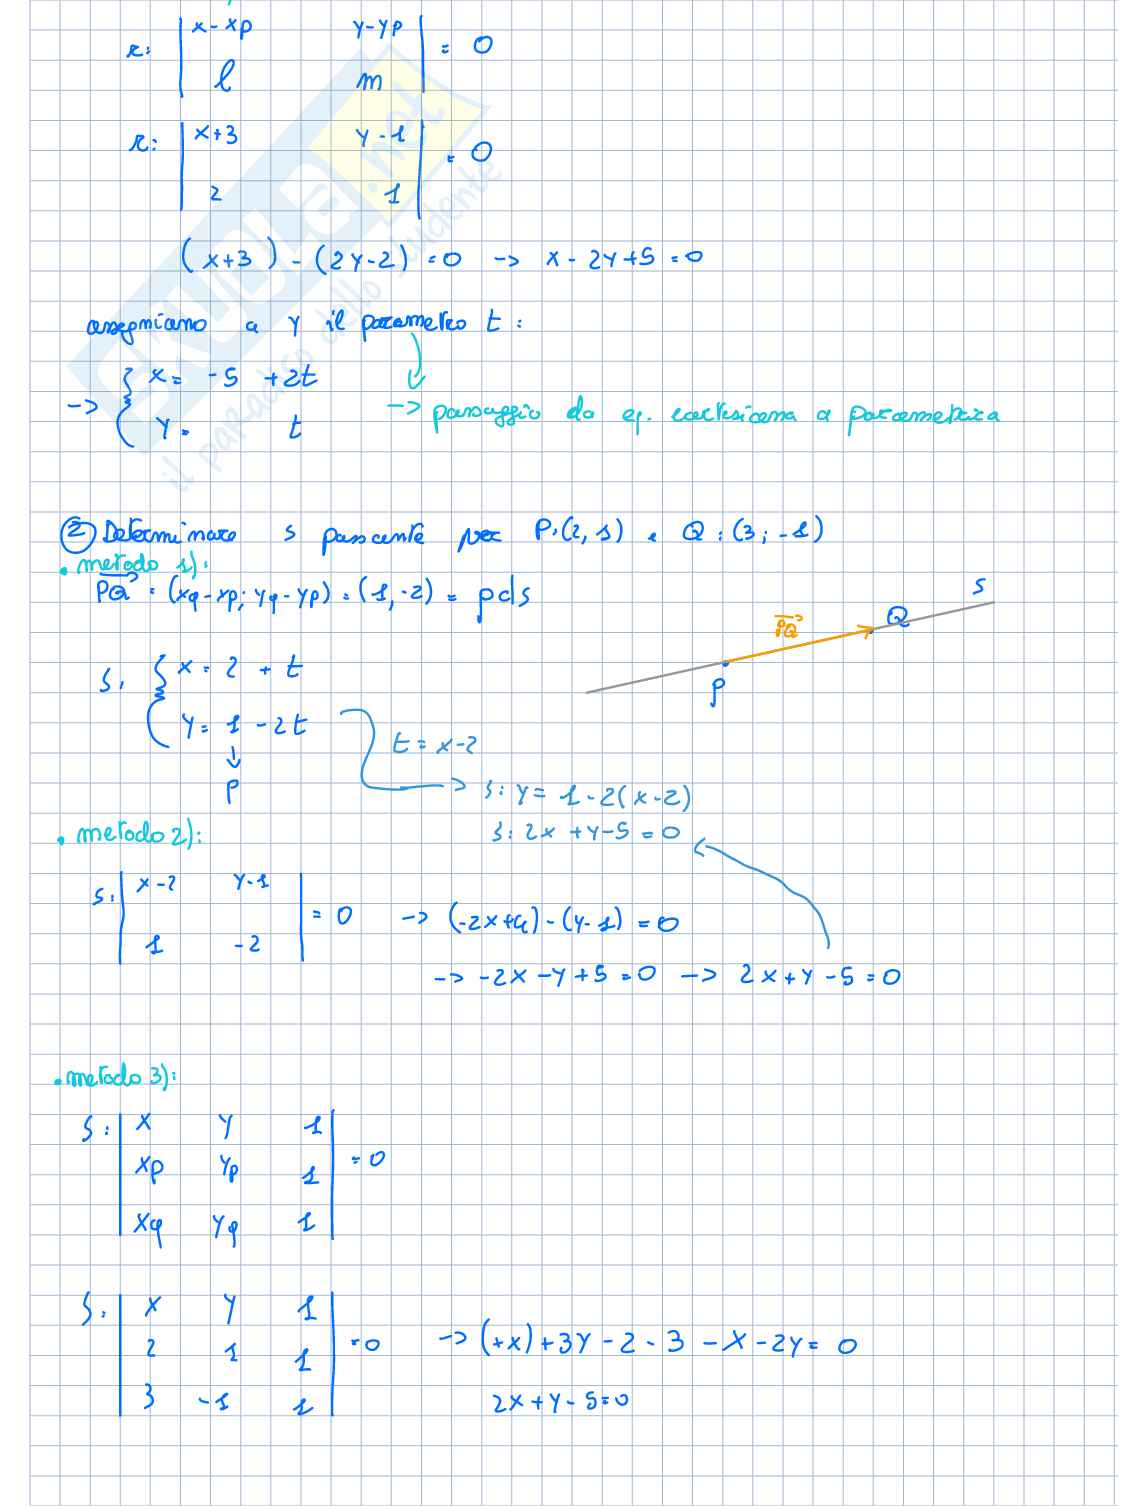 r: | x-xp y-yp | = 0
| l m |
r: | x+3 y-1 | = 0
| 2 1 |
(x+3) - (2y-2) = 0 -> x - 2y+5 = 0
assegniamo a y il parametro t:
-> { x = -5 +2t
y = t
-> passaggio da eq. cartesiana a parametrica
② Determinare s passante per P:(2,1) e Q:(3;-1)
• metodo 1):
PQ = (xq-xp; yq-yp) = (1,-2) = pds
s: { x = 2 + t
y = 1 - 2t
P
t = x-2
s: y = 1 - 2(x-2)
s: 2x + y - 5 = 0
PQ
P
Q
s
• metodo 2):
s: | x-2 y-1 | = 0 -> (-2x+4) - (y-1) = 0
| 1 -2 |
-> -2x - y + 5 = 0 -> 2x + y - 5 = 0
• metodo 3):
s: | x y 1 |
| xp yp 1 | = 0
| xq yq 1 |
s: | x y 1 |
| 2 1 1 | = 0 -> (+x) + 3y - 2 - 3 - x - 2y = 0
| 3 -1 1 |
2x + y - 5 = 0
SKUOLA.net
il paradiso dello studente